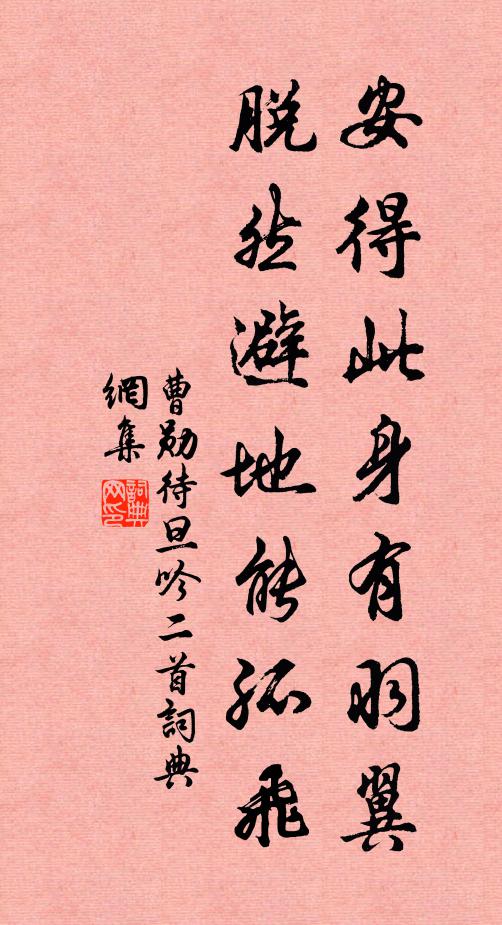 安得此身有羽翼
脱然避地能孤飛
曹勛待旦吟二首詞典
網集
詞典
网印